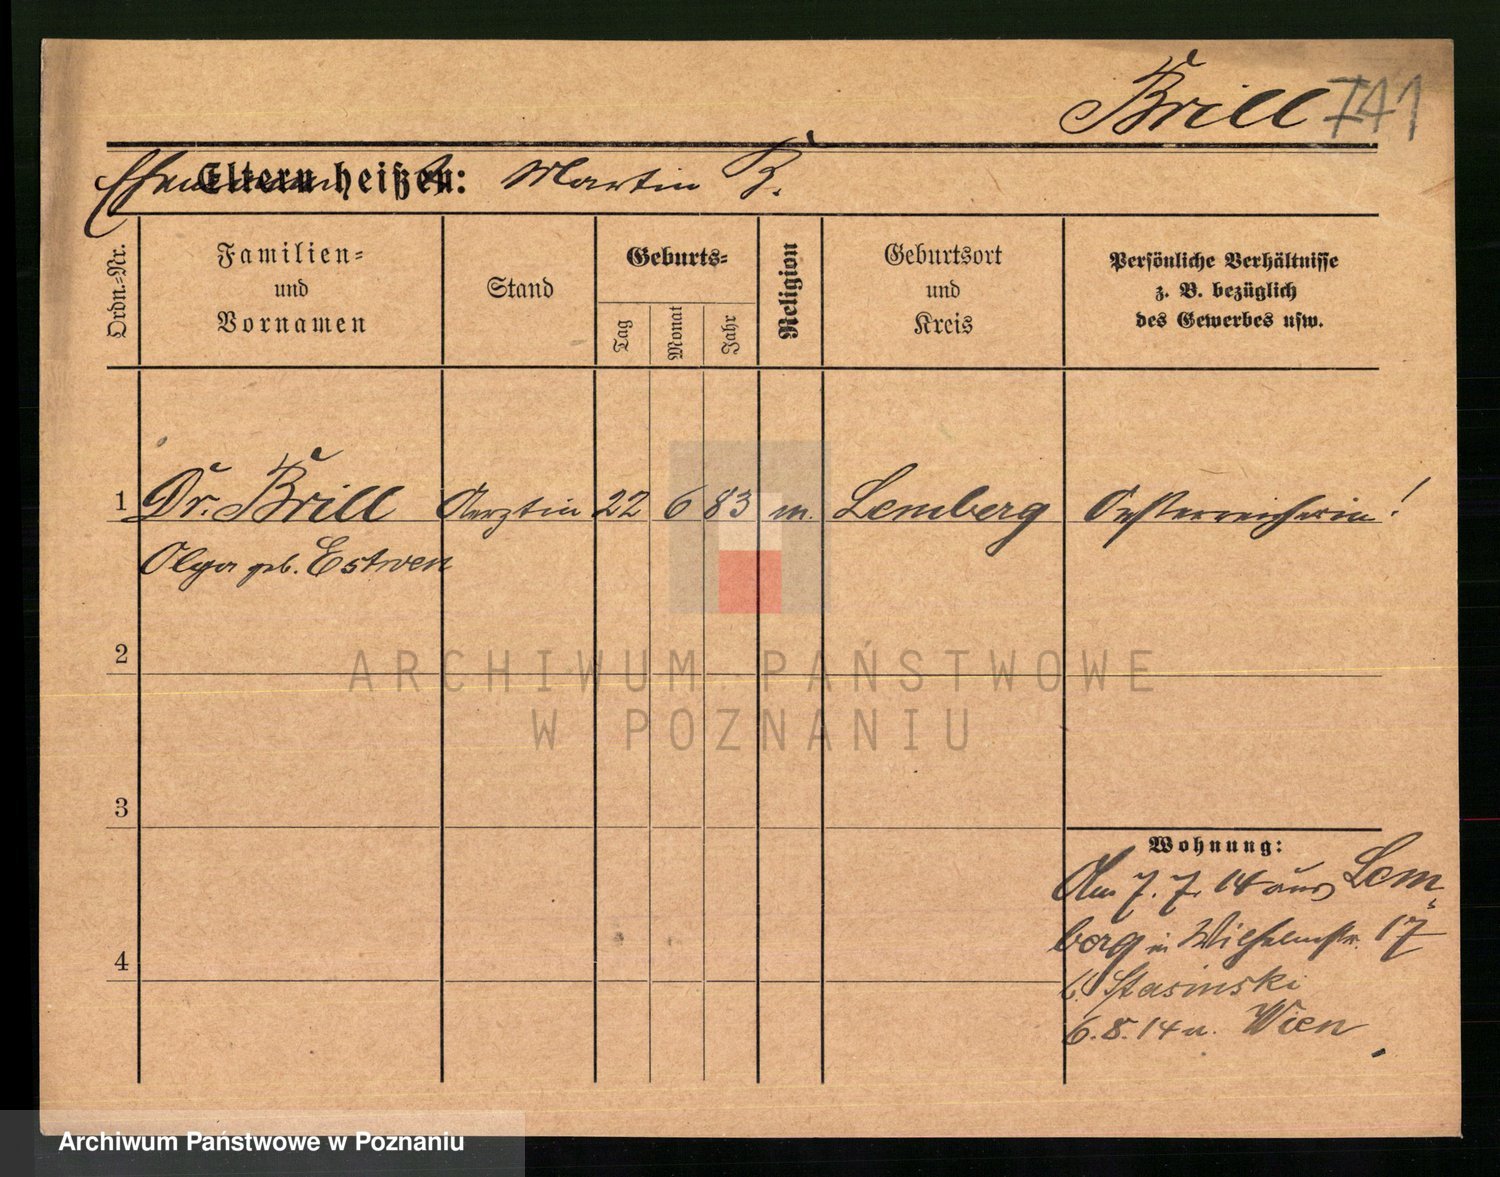 Brill 741
Ehemann h. Martin B.
Eltern heißen:
Ordn.-Nr.
Familien-
und
Vornamen
Stand
Geburts-
Tag
Monat
Jahr
Religion
Geburtsort
und
Kreis
Persönliche Verhältnisse
z. B. bezüglich
des Gewerbes usw.
1 Dr. Brill Aerztin 22 6 83 m. Lemberg Oesterreicherin!
Olga geb. Estwen
2
ARCHIWUM PAŃSTWOWE
W POZNANIU
3
Wohnung:
Am 7. 7. 14 aus Lem-
berg in Wilhelmstr. 17
b/ Stasinski
4
6. 8. 14 n. Wien
Archiwum Państwowe w Poznaniu